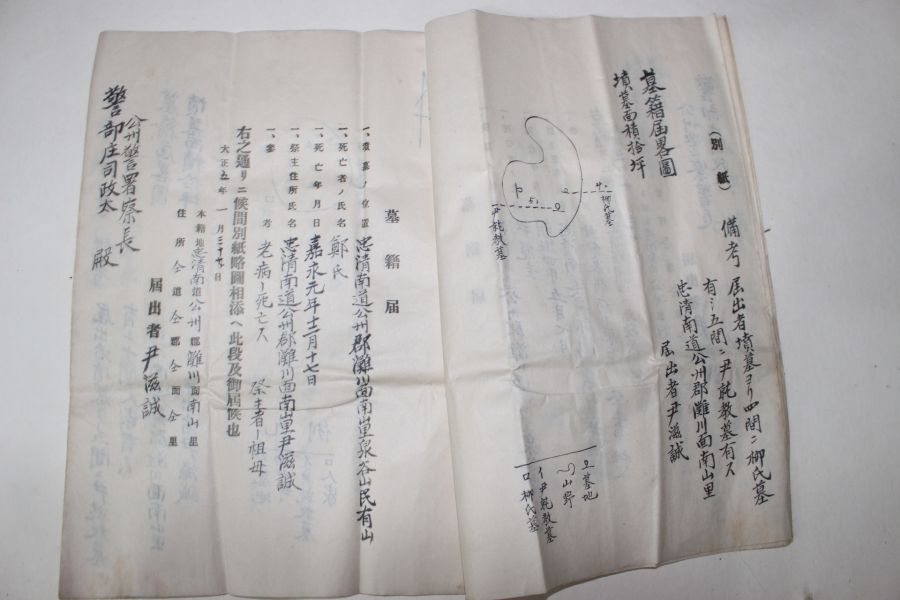 (別紙)
墓籍届畧圖
墳墓面積拾坪
四
柳氏墓
五
尹𣬛教墓
備考 届出者墳墓ヨリ四間ニ柳氏墓
有シ五間ニ尹𣬛教墓有ス
忠清南道公州郡灘川面南山里
届出者尹滋誠
墓地
山野
イ尹𣬛教墓
ロ柳氏墓
墓籍届
一、墳墓ノ位置 忠清南道公州郡灘川面南山里泉谷山民有山
一、死亡者ノ氏名 鄭氏
一、死亡年月日 嘉永元年十二月十七日
一、祭主住所氏名 忠清南道公州郡灘川面南山里尹滋誠
一、參考 老病ニ死亡ス 祭主者ノ祖母
右之通リニ候間別紙略圖相添ヘ此段及御届候也
大正五年一月三十日
本籍地忠清南道公州郡灘川面南山里
住所仝道仝郡仝面仝里
届出者尹滋誠
公州警察署長
警部庄司政太殿